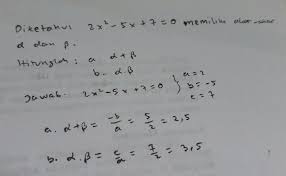 Diketahui 2x² - 5x + 7 = 0 memiliki akar-akar
α dan β.
Hitunglah : a. α + β
b. α.β
Jawab: 2x² - 5x + 7 = 0 } a = 2
b = -5
c = 7
a. α + β = -b/a = 5/2 = 2,5
b. α.β = c/a = 7/2 = 3,5